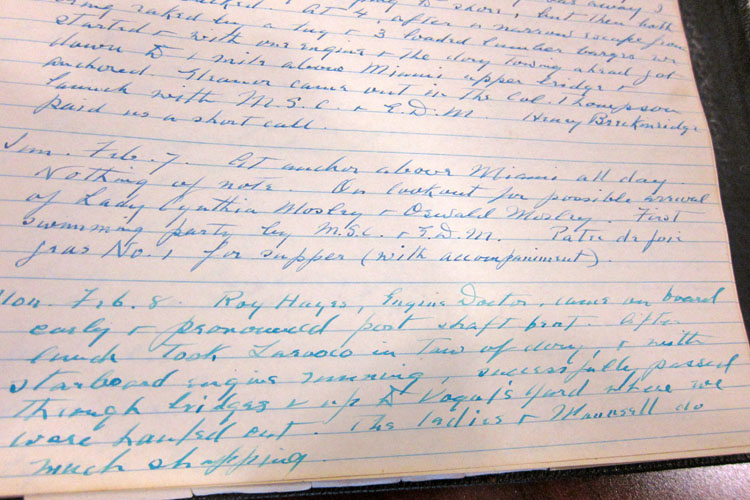 to shore, but then both
being raked by a tug & 3 loaded lumber barges we
At 4, after a narrow escape from
started & with one engine & the dory towing ahead got
down to ½ mile above Miami upper bridge &
anchored. Eleanor came out in the Col. Thompson
launch with M.S.C. & E.D.M. Henry Breckinridge
paid us a short call.
Sun. Feb. 7. At anchor above Miami all day.
Nothing of note. On lookout for possible arrival
of Lady Cynthia Mosley & Oswald Mosley. First
swimming party by M.S.C. & E.D.M. Patee de foie
gras No. 1 for supper (with accompaniment).
Mon. Feb. 8. Roy Hayes, Engine Doctor, came on board
early & pronounced port shaft bent. After
lunch took Larooco in tow of dory, & with
starboard engine running, successfully passed
through bridges & up to Vogel's Yard where we
were hauled out. The ladies & Maunsell do
much shopping.